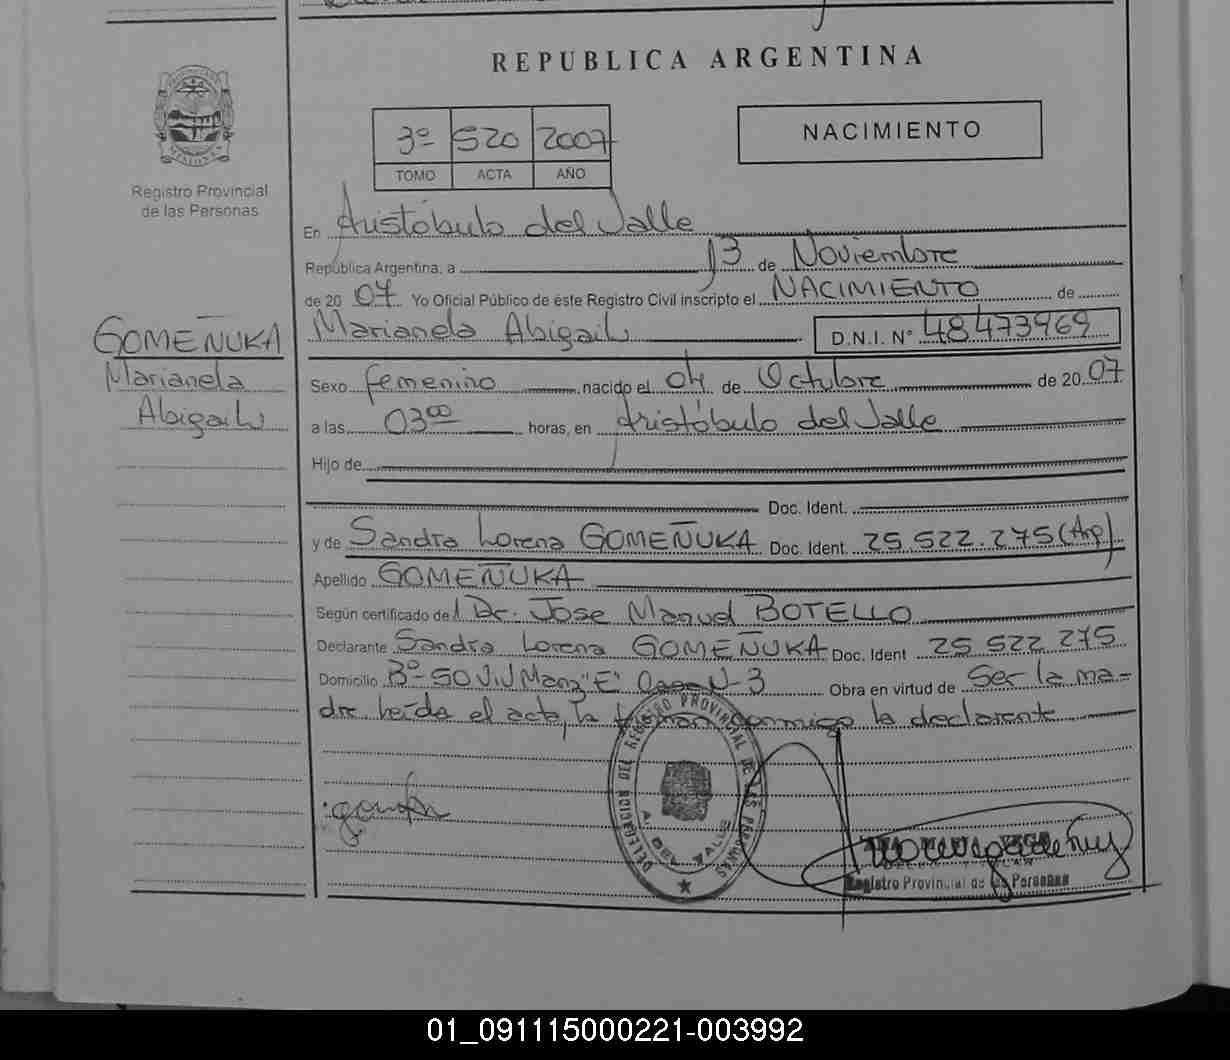 REPUBLICA ARGENTINA
3º 520 2007
TOMO ACTA AÑO
NACIMIENTO
Registro Provincial
de las Personas
En Aristóbulo del Valle
República Argentina, a 13 de Noviembre
de 2007 Yo Oficial Público de éste Registro Civil inscripto el NACIMIENTO de
Marianela Abigail D.N.I. Nº 48473969
GOMEÑUKA
Marianela
Abigail
Sexo femenino nacido el 04 de Octubre de 2007
a las 03⁰⁰ horas, en Aristóbulo del Valle
Hijo de
Doc. Ident.
y de Sandra Lorena GOMEÑUKA Doc. Ident. 25.522.275 (Arg)
Apellido GOMEÑUKA
Según certificado del Dr. Jose Manuel BOTELLO
Declarante Sandra Lorena GOMEÑUKA Doc. Ident 25 522 275
Domicilio Bº 50 V.V Manz "E" Casa Nº 3 Obra en virtud de Ser la ma-
dre leída el acta, la firman conmigo la declarante
DELEGACION DEL REGISTRO PROVINCIAL DE LAS PERSONAS
A. DEL VALLE
Registro Provincial de las Personas
01_091115000221-003992